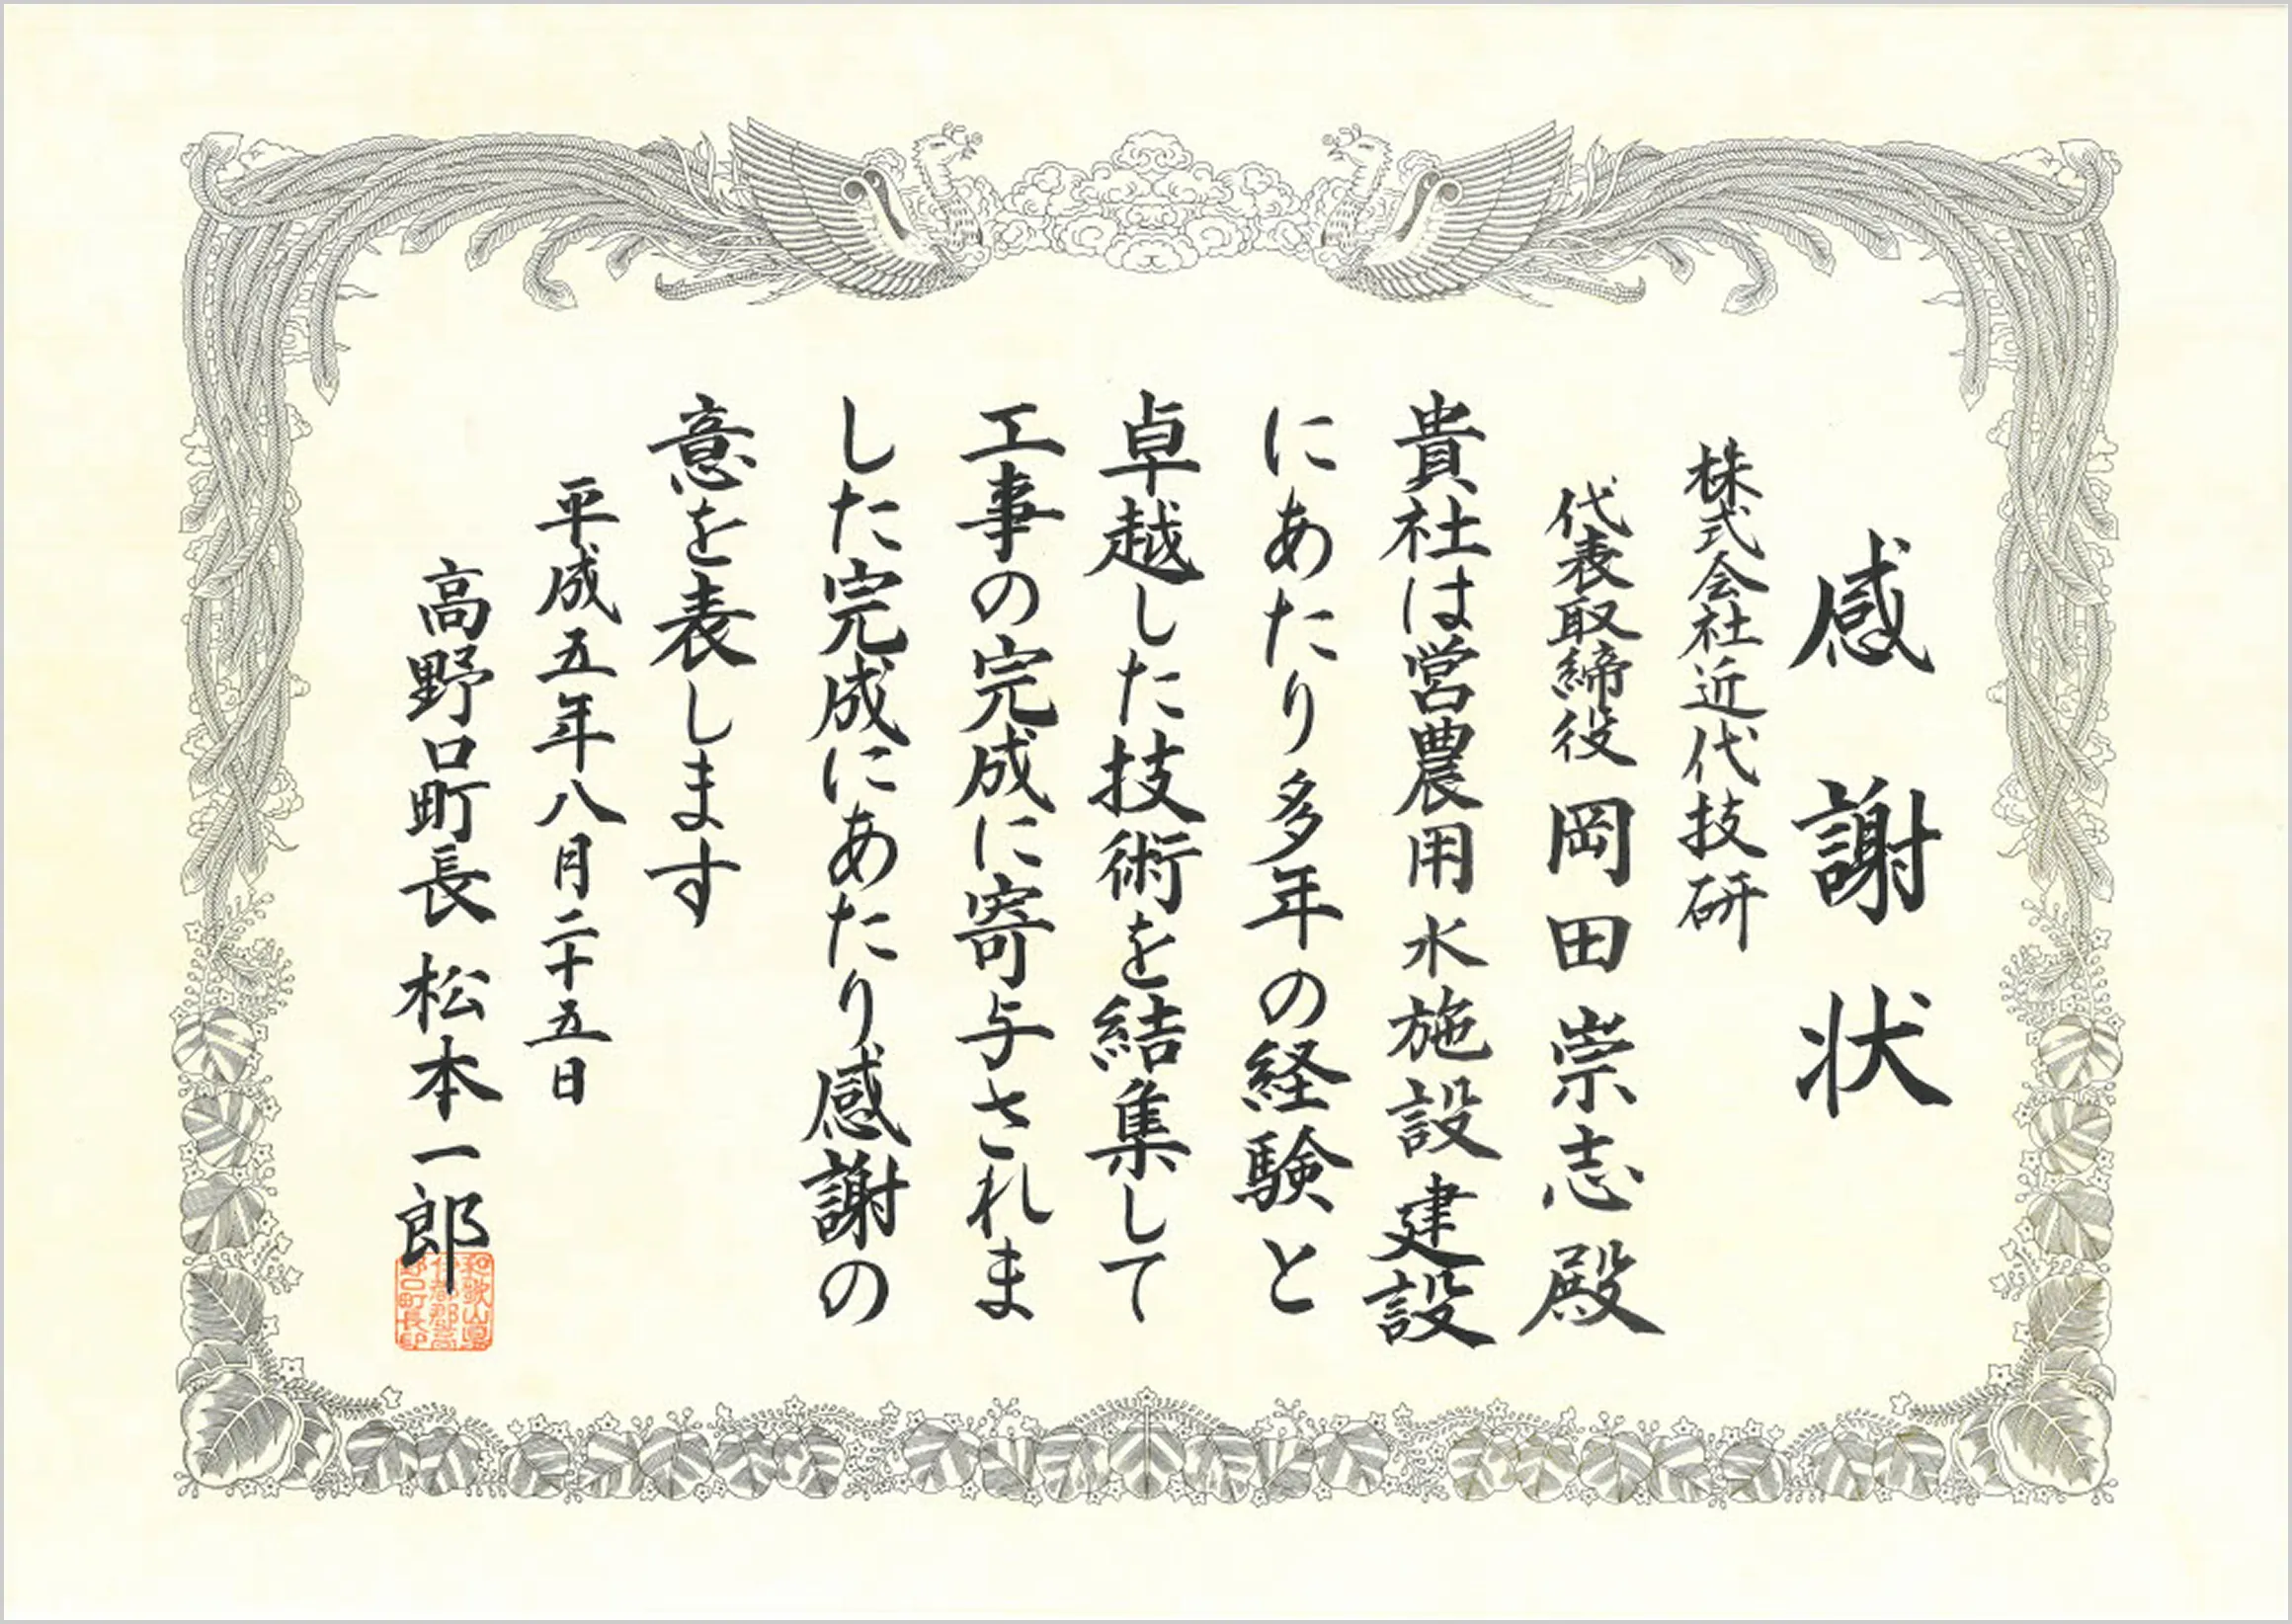 感謝状
株式会社近代技研
代表取締役 岡田崇志殿
貴社は営農用水施設建設
にあたり多年の経験と
卓越した技術を結集して
工事の完成に寄与されま
した完成にあたり感謝の
意を表します
平成五年八月二十五日
高野口町長 松本一郎
和歌山県
伊都郡高
野口町長印